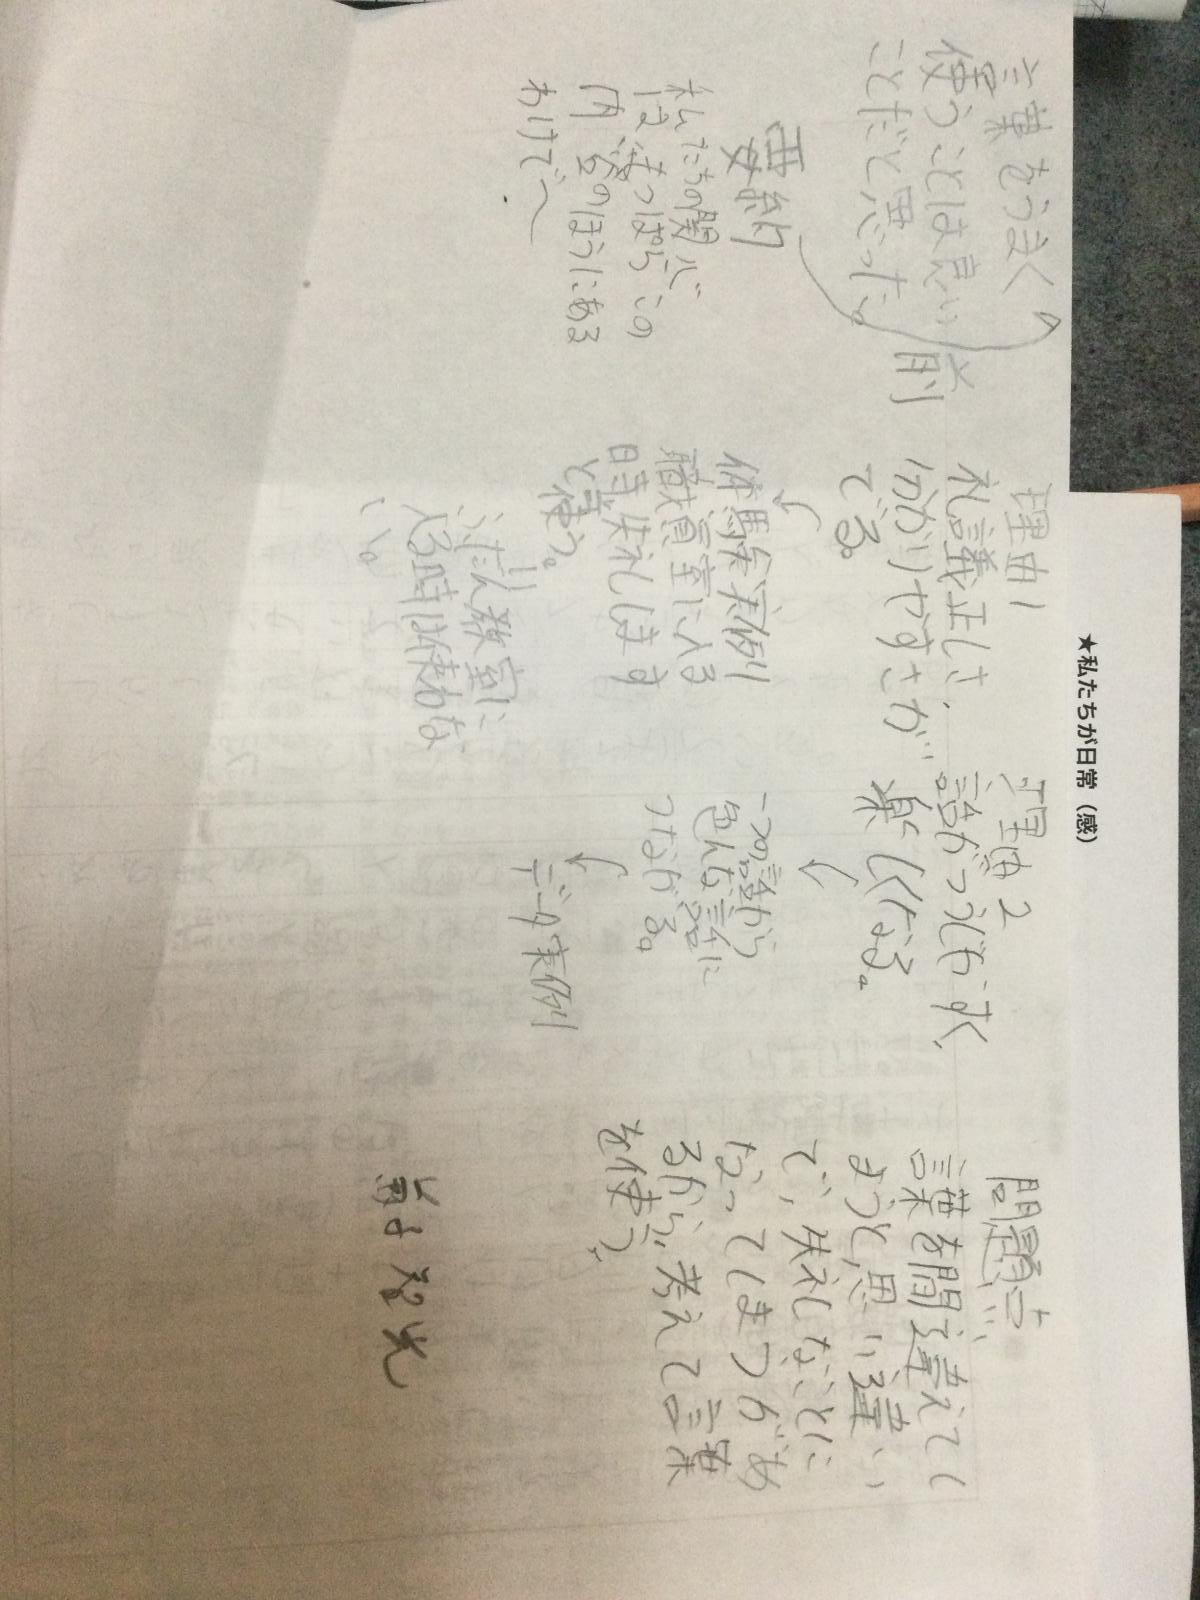 ★私たちが日常（感）
言葉をうまく
使うことは良い
ことだと思った。
前
要約
私たちの関心
は、まっぱらこの
内容のほうにある
わけで〜
理由1
礼議正しさ、
分かりやすさが
でる。
体馬矣実例
職員室に入る
時失礼します
と使う。
ふだん教室に
入る時は使わな
い。
理由2
話がつうじやすく、
楽しくなる。
一つの話から
色んな話に
つながる。
データ実例
問題点
言葉を間違えてし
まうと思い違い
で、失礼なことに
なってしまうがあ
るから、考えて言葉
を使う。